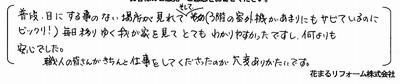 普段、目にする事のない場所が見れて(3階の室外機があまりにもサビているのに
そして
ビックリ!)毎日移りゆく我が家を見てとてもわかりやすかったですし、何よりも
安心でした。
職人の皆さんがきちんと仕事をしてくださったのが大変ありがたいです。
花まるリフォーム株式会社